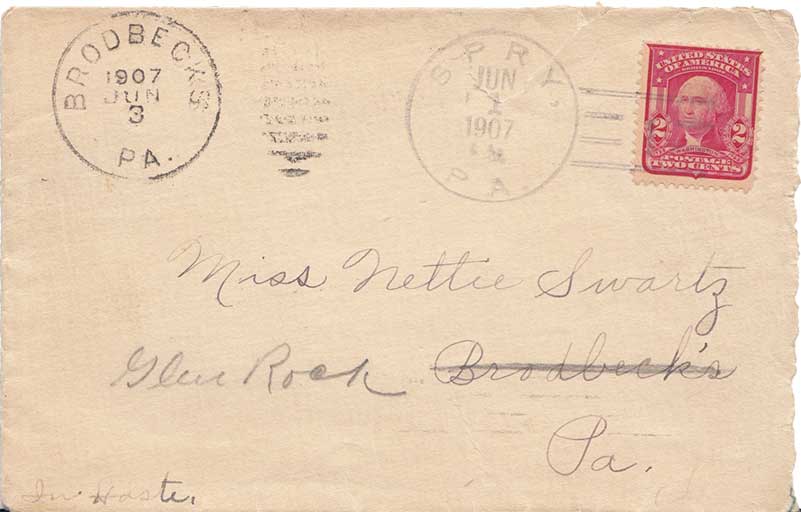 BRODBECKS
1907
JUN
3
PA.
SPRY,
JUN
1
1907
PA.
UNITED STATES
OF AMERICA
2 2
POSTAGE
TWO CENTS
Miss Nettie Swartz
Glen Rock Brodbeck's
Pa.
In Haste,